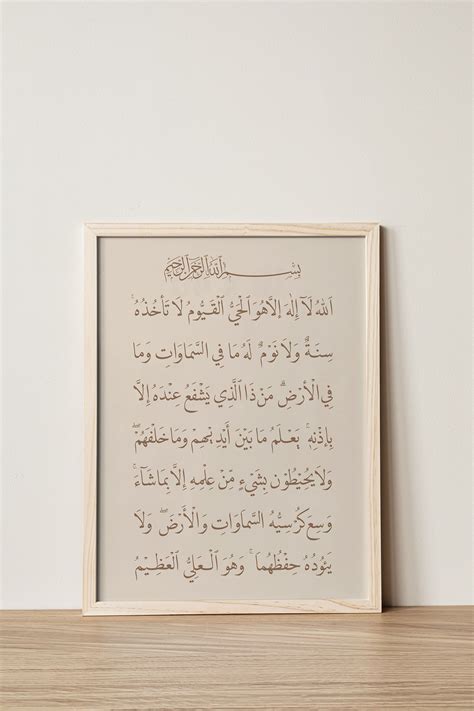 بِسْمِ اللَّهِ الرَّحْمَنِ الرَّحِيمِ
اللهُ لَآ إِلَٰهَ إِلَّا هُوَ الْحَيُّ الْقَيُّومُ لَا تَأْخُذُهُ ۚ
سِنَةٌ وَلَا نَوْمٌ لَهُ مَا فِي السَّمَاوَاتِ وَمَا
فِي الْأَرْضِ ۗ مَنْ ذَا الَّذِي يَشْفَعُ عِنْدَهُ إِلَّا
بِإِذْنِهِ ۚ يَعْلَمُ مَا بَيْنَ أَيْدِيهِمْ وَمَا خَلْفَهُمْ ۖ
وَلَا يُحِيطُونَ بِشَيْءٍ مِّنْ عِلْمِهِ إِلَّا بِمَا شَآءَ ۚ
وَسِعَ كُرْسِيُّهُ السَّمَاوَاتِ وَالْأَرْضَ ۖ وَلَا
يَئُودُهُ حِفْظُهُمَا ۚ وَهُوَ الْعَلِيُّ الْعَظِيْمُ